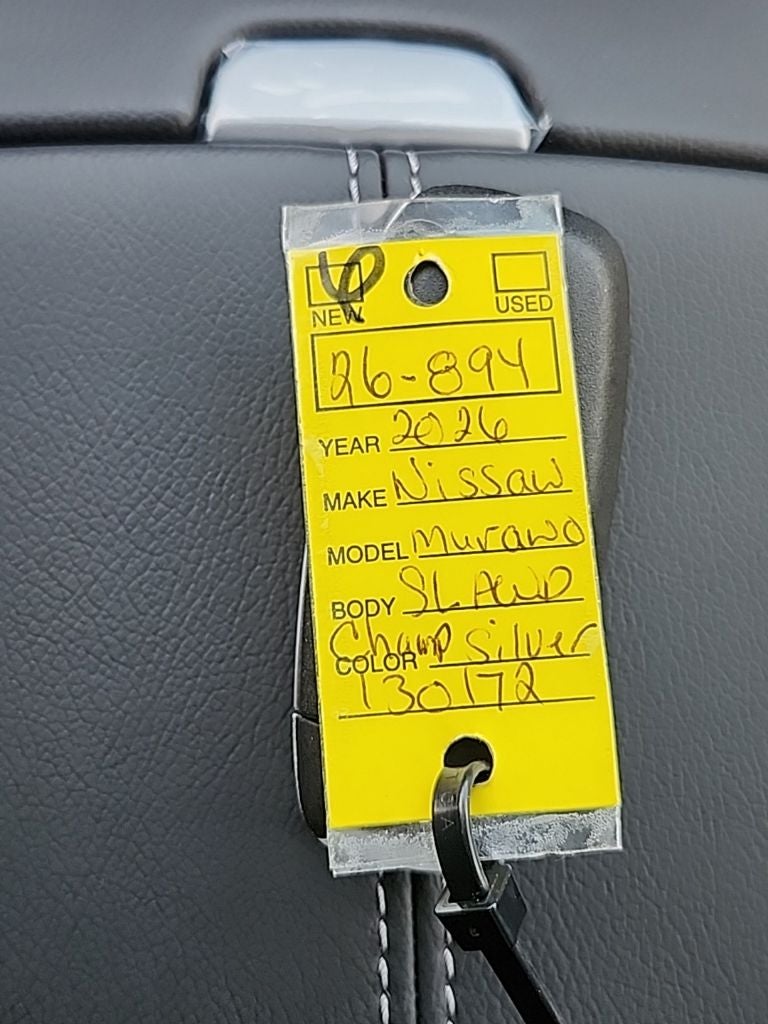 NEW USED
26-894
YEAR 2026
MAKE Nissan
MODEL Murano
BODY SL AWD
COLOR Champ Silver
130172